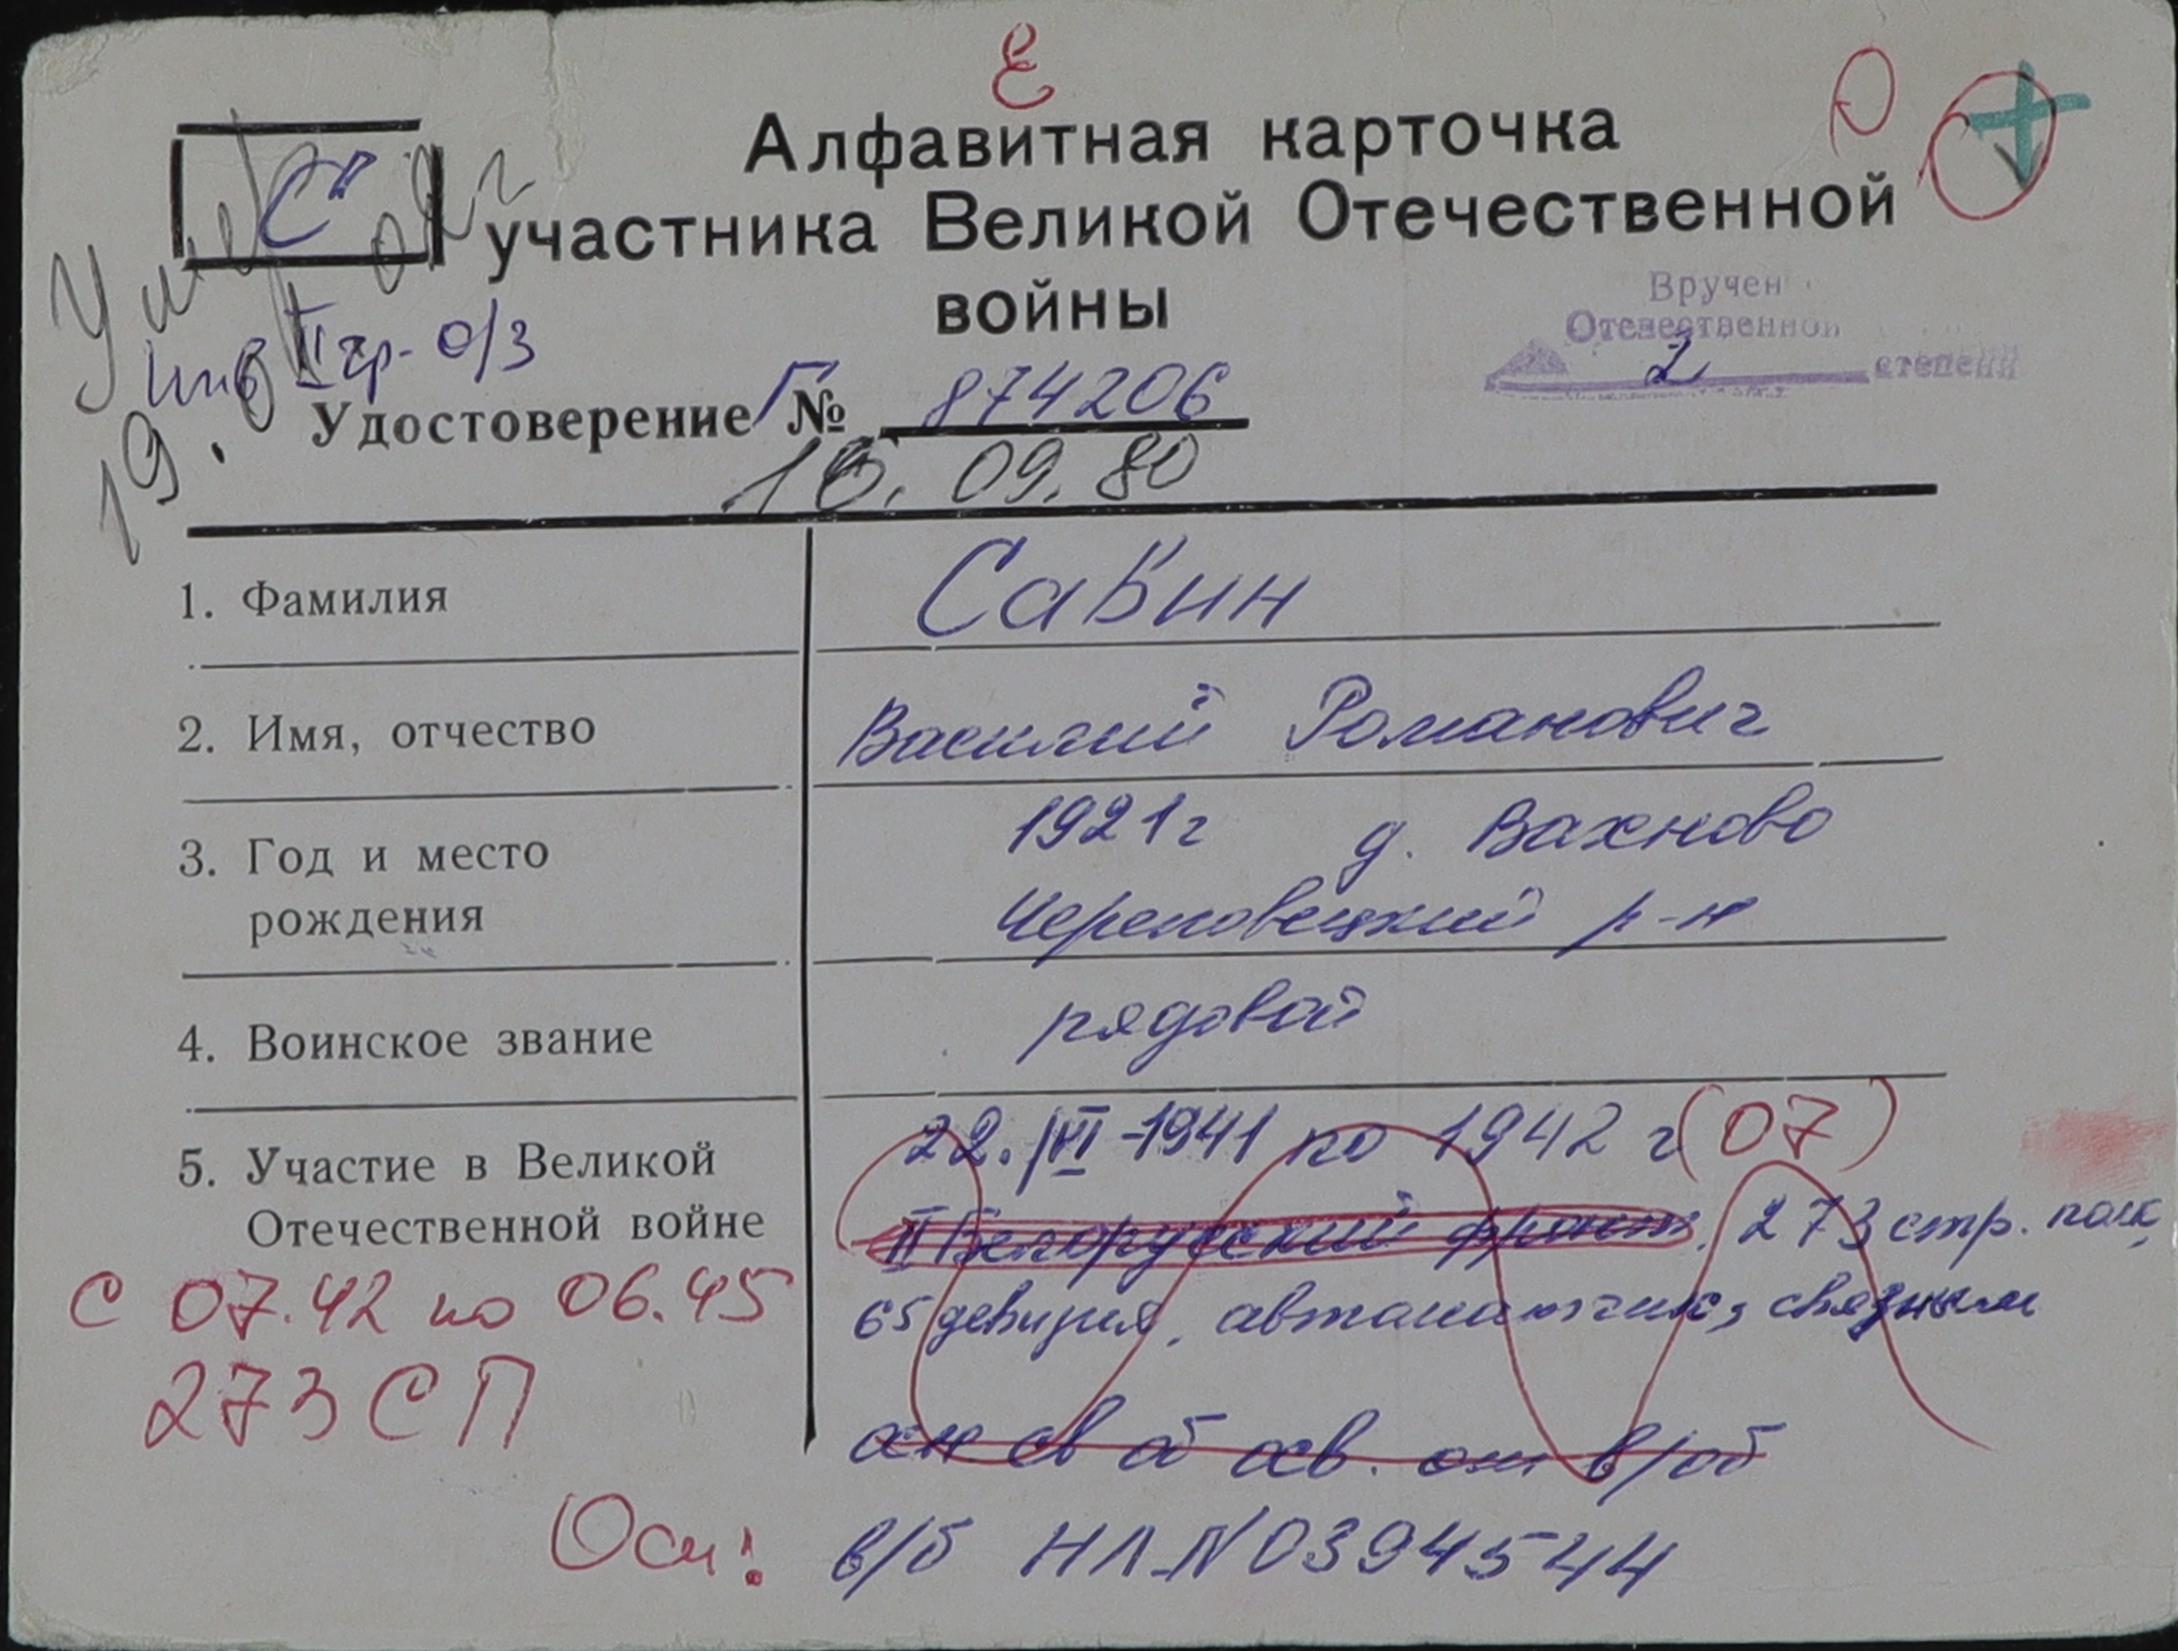 Е
Алфавитная карточка
участника Великой Отечественной
войны
"С"
Умер
Инв II гр. о/з
Вручен
Отечественной
2 степени
Удостоверение Г № 874206
10.09.80
1. Фамилия
Савин
2. Имя, отчество
Василий Романович
3. Год и место
рождения
1921 г д. Вахново
Череповецкий р-н
4. Воинское звание
рядовой
5. Участие в Великой
Отечественной войне
22. VI-1941 по 1942 г (07)
II Белорусский фронт. 273 стр. полк,
65 дивизия, автоматчик, связным
с 07.42 по 06.45
273 СП
ан св об осв. от в/об
Осн:
в/б НЛ N 0394544